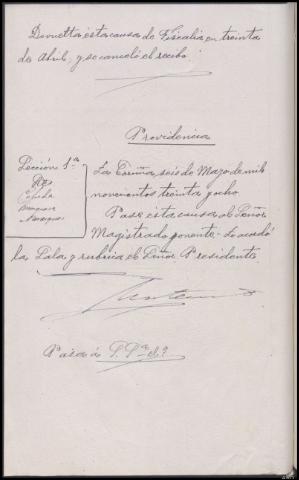 Devuelta esta causa de Fiscalía en treinta
de Abril, y se canceló el recibo.
Providencia
Sección 1ª
La Coruña, seis de Mayo de mil
novecientos treinta y ocho.
Pase esta causa al Señor
Magistrado ponente. Lo acordó
la Sala y rubrica el Señor Presidente
Pasa á